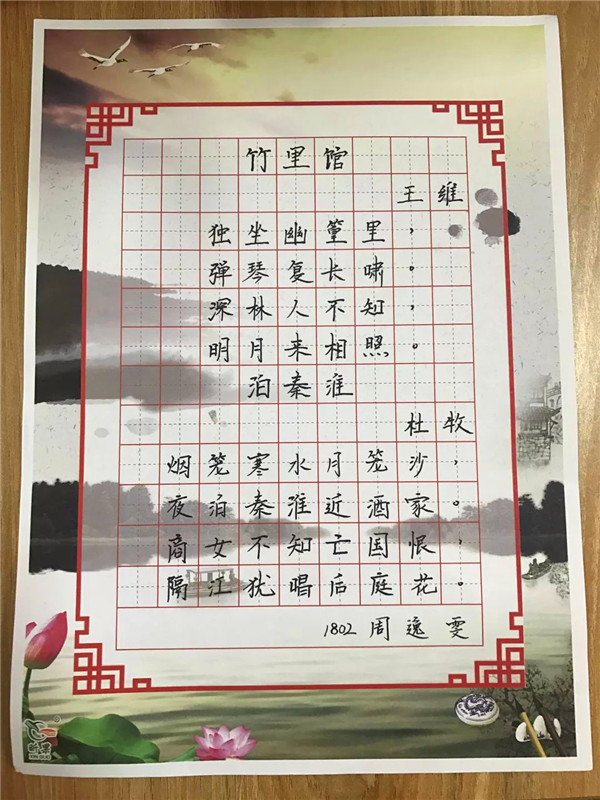 竹里馆
王维
独坐幽篁里，
弹琴复长啸。
深林人不知，
明月来相照。
泊秦淮
杜牧
烟笼寒水月笼沙，
夜泊秦淮近酒家。
商女不知亡国恨，
隔江犹唱后庭花。
1802 周逸雯
昕果